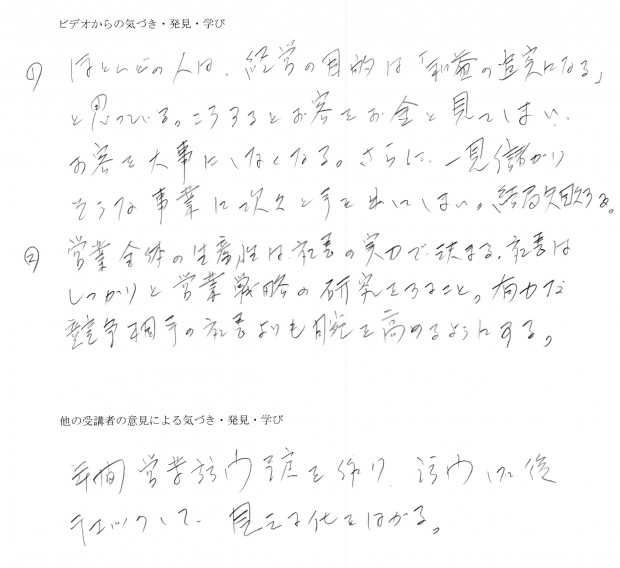 ビデオからの気づき・発見・学び
(1) ほとんどの人は、経営の目的は「利益の追求になる」
と思っている。こうするとお客をお金と見てしまい、
お客を大事にしなくなる。さらに、一見儲かり
そうな事業に次々と手を出してしまい。結局失敗する。
(2) 営業全体の生産性は社長の実力で決まる。社長は
しっかりと営業戦略の研究をすること。有力な
競争相手の社長よりも 能を高めるようにする。
他の受講者の意見による気づき・発見・学び
年間営業訪問 を作り、訪問した後
チェックして、見える化をはかる。